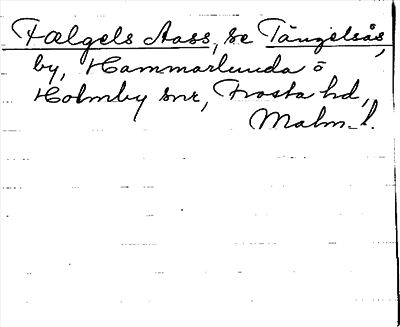 Fælgels Aass, se Tängelsås,
by, Hammarlunda o
Holmby snr, Frosta hd,
Malm. l.